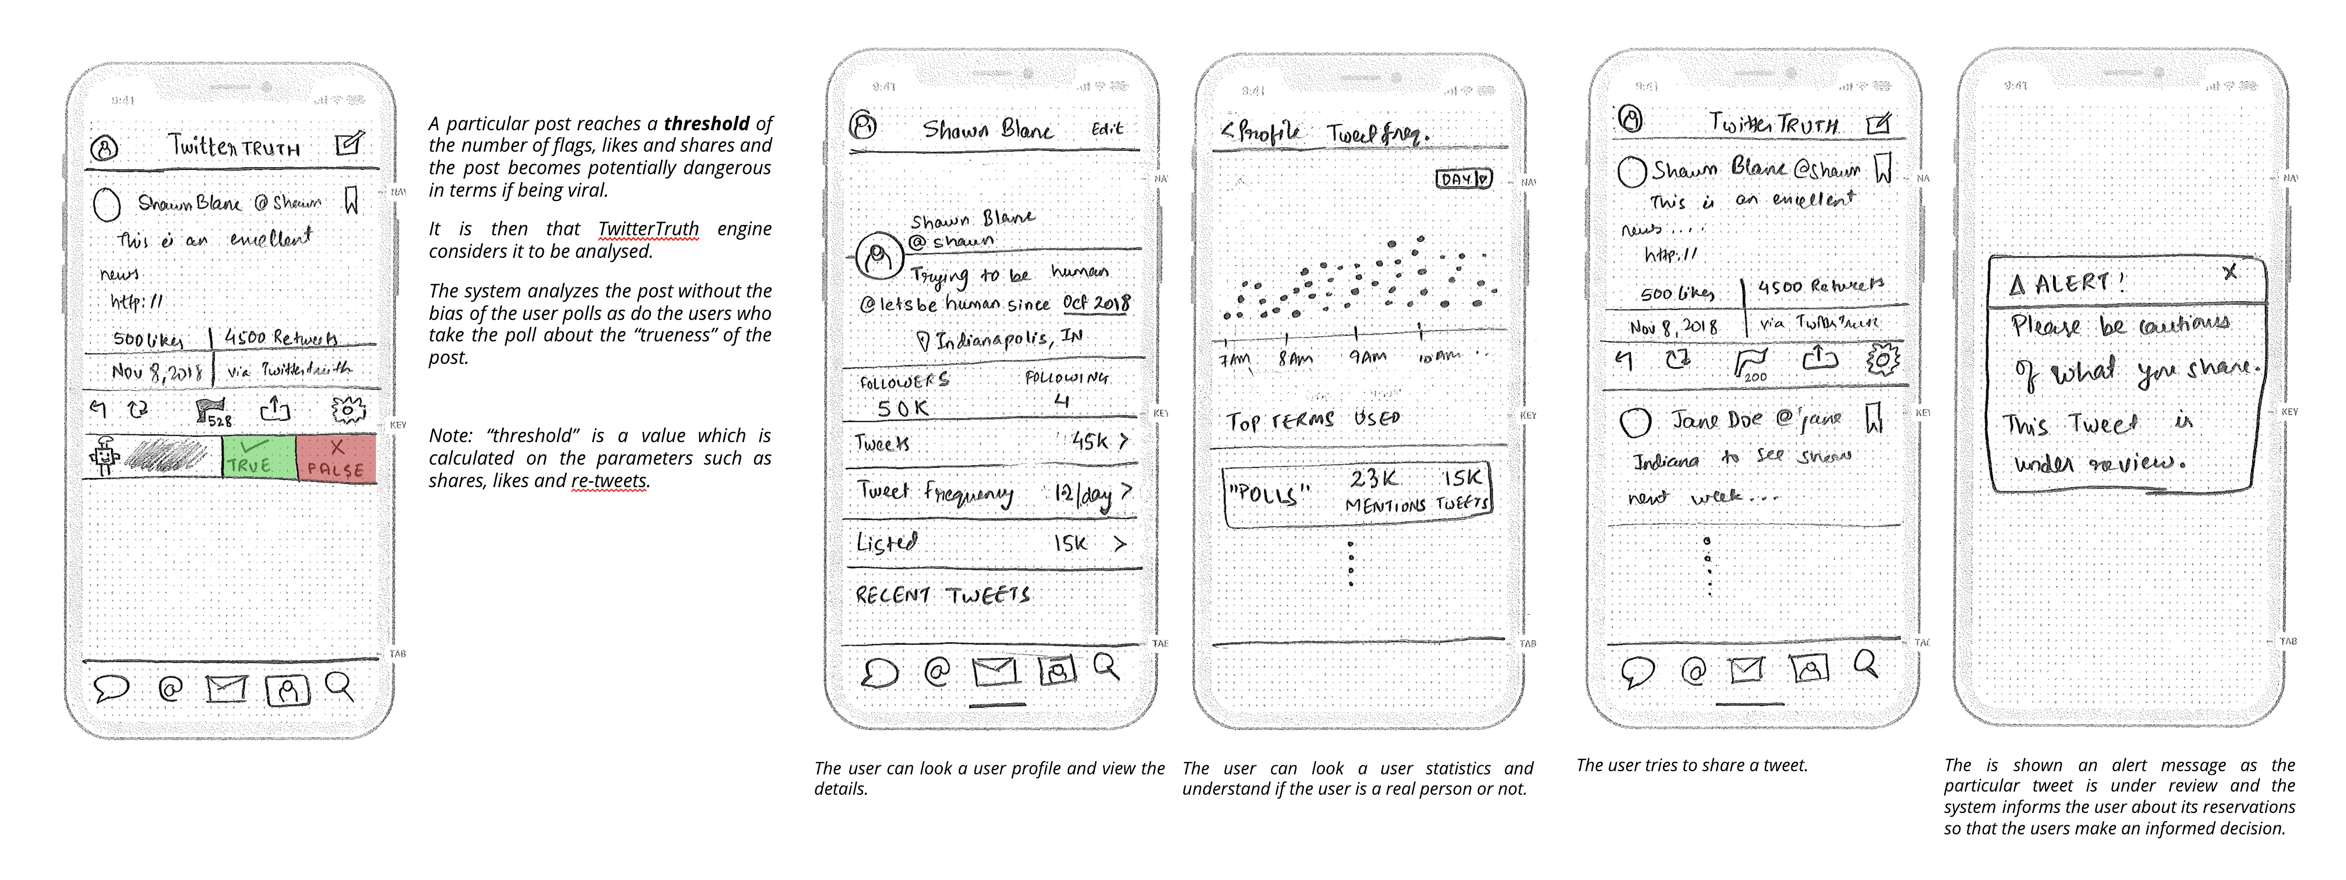 9:41
TwitterTRUTH
Shawn Blane @Shawn
This is an excellent
news
http://
500 likes | 4500 Retweets
Nov 8, 2018 | via Twittertruth
528
TRUE
FALSE
NAV
KEY
TAB
A particular post reaches a threshold of
the number of flags, likes and shares and
the post becomes potentially dangerous
in terms if being viral.
It is then that TwitterTruth engine
considers it to be analysed.
The system analyzes the post without the
bias of the user polls as do the users who
take the poll about the “trueness” of the
post.
Note: “threshold” is a value which is
calculated on the parameters such as
shares, likes and re-tweets.
9:41
Shawn Blane Edit
Shawn Blane
@shawn
Trying to be human
@letsbe human since Oct 2018
Indianapolis, IN
FOLLOWERS FOLLOWING
50K 4
Tweets 45K >
Tweet frequency 12/day >
Listed 15K >
RECENT TWEETS
NA
KEY
TAE
The user can look a user profile and view the
details.
9:41
<Profile Tweet freq.
DAY
7AM 8AM 9AM 10AM ..
TOP TERMS USED
"POLLS" 23K 15K
MENTIONS TWEETS
NAV
KEY
TAB
The user can look a user statistics and
understand if the user is a real person or not.
9:41
TwitterTRUTH
Shawn Blane @Shawn
This is an excellent
news....
http://
500 likes | 4500 Retweets
Nov 8, 2018 | via TwitterTruth
200
Jane Doe @jane
Indiana to see snow
next week...
NA
KEY
TAE
The user tries to share a tweet.
9:41
ALERT! X
Please be cautious
of what you share.
This Tweet is
under review.
NAV
KEY
TAB
The is shown an alert message as the
particular tweet is under review and the
system informs the user about its reservations
so that the users make an informed decision.